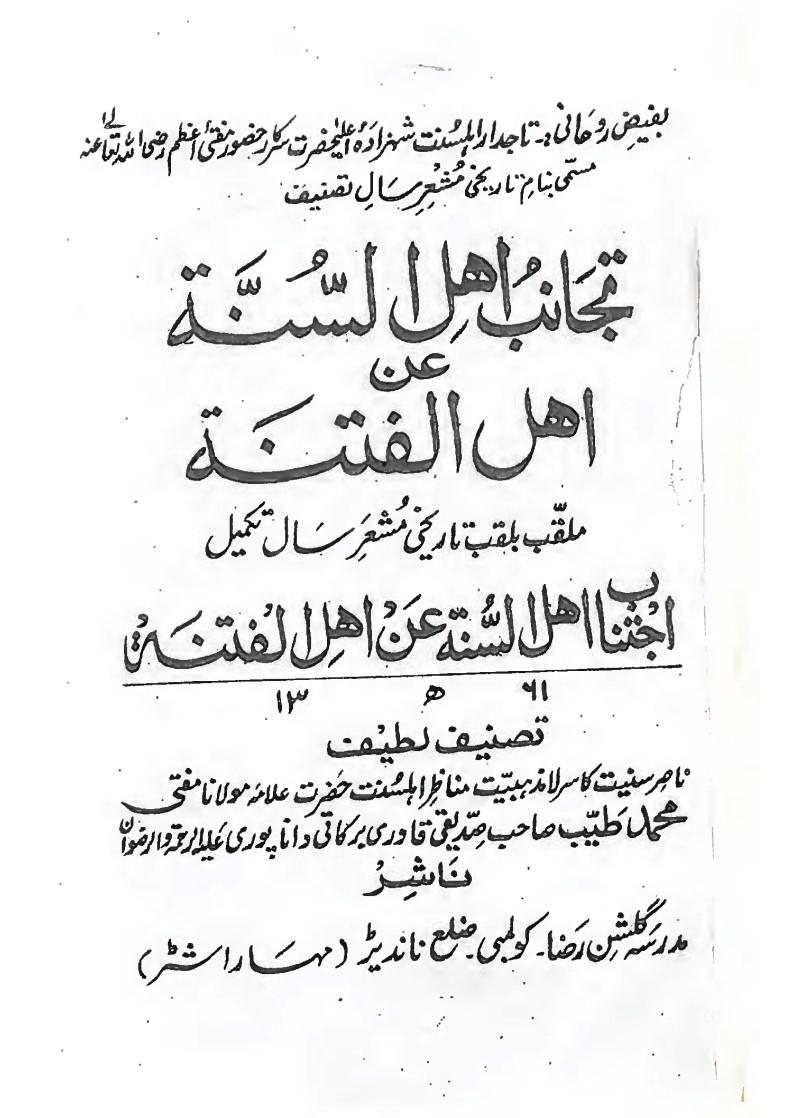 بفیضِ روحانی :۔ تاجدار اہلسُنت شہزادۂ اعلیٰحضرت سرکار حضور مفتیٔ اعظم رضی اللہ تعالےٰ عنہ
مسمّٰی بنام تاریخی مُشعِرِ سَالِ تصنیف
تجَانبُ اھلِ السُّنَّۃ
عن
اھل الفتنَۃ
ملقّب بلقب تاریخی مُشعَرِ سَال تکمیل
اجْتناب اھل السُّنۃ عَنْ اھلِ الفُتنَۃ
۱۳ ھ ۶۱
تصنیف لطیف
ناصر سنیت کاسر لامذہبیّت مناظرِ اہلسُنت حضرت علامہ مولانا مفتی
محمد طیّب صاحب صِدّیقی قادری برکاتی داناپوری علیہ الرحمۃ والرضوان
نَاشِرْ
مدرسہ گلشنِ رَضا۔ کولمبی۔ ضلع ناندیڑ (مہَاراشٹر)